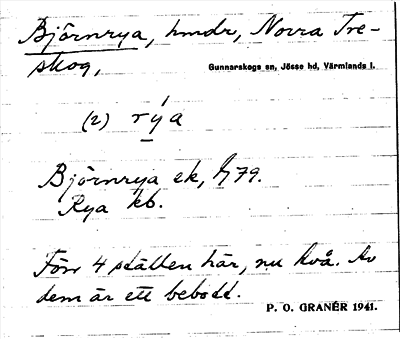 Björnrya, hmdr, Norra Tre-
skog,
Gunnarskogs sn, Jösse hd, Värmlands l.
(2) rýa
Björnrya ek, 79.
Rya kb.
Förr 4 ställen här, nu två. Av
dem är ett bebodd.
P. O. GRANÉR 1941.